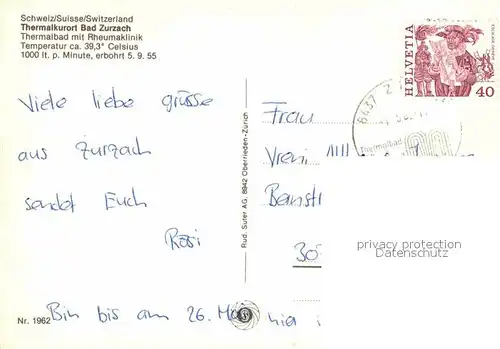 Schweiz/Suisse/Switzerland
Thermalkurort Bad Zurzach
Thermalbad mit Rheumaklinik
Temperatur ca. 39,3° Celsius
1000 lt. p. Minute, erbohrt 5. 9. 55
Viele liebe grüsse
aus Zurzach
sendet Euch
Rosi
Bin bis am 26. Mai hier
Nr. 1962
Rud. Suter AG, 8942 Oberrieden-Zürich
HELVETIA
40
8437 Z
Thermalbad
Frau
Vreni
privacy protection
Datenschutz